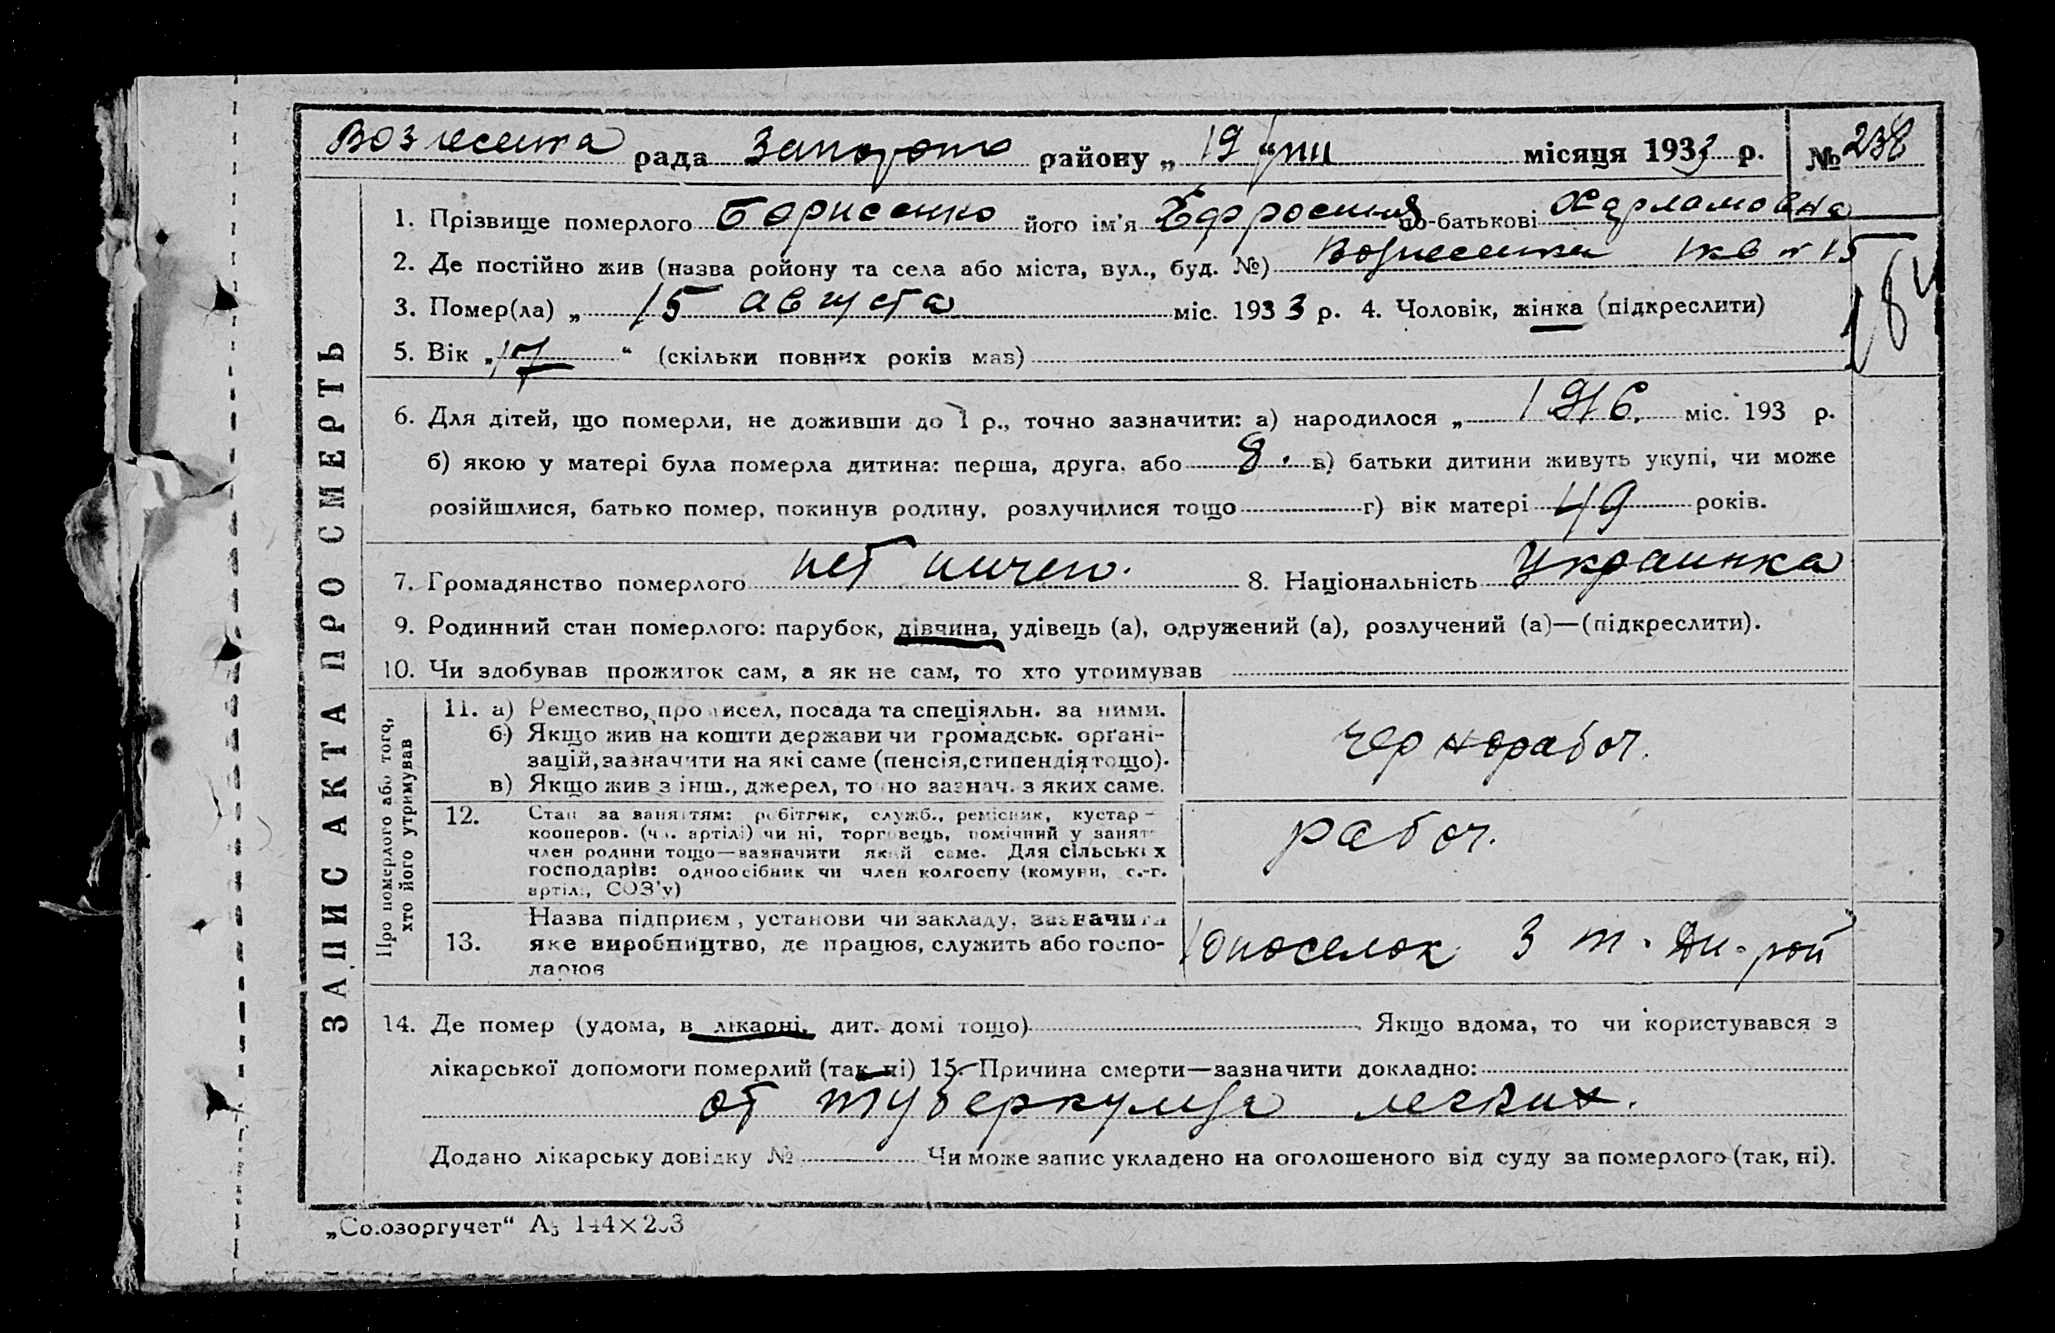 Вознесенка рада Запорож району „ 19 " VIII місяця 1933 р. № 238
1. Прізвище померлого Борисенко його ім'я Ефросиния по-батькові Харламовна
2. Де постійно жив (назва району та села або міста, вул., буд. №) Вознесенка 1 кв № 15
184
3. Помер(ла) „ 15 августа міс. 1933 р. 4. Чоловік, жінка (підкреслити)
5. Вік „ 17 " (скільки повних років мав)
6. Для дітей, що померли, не доживши до 1 р., точно зазначити: а) народилося „ 1916. міс. 193 р.
б) якою у матері була померла дитина: перша, друга, або 8. в) батьки дитини живуть укупі, чи може
розійшлися, батько помер, покинув родину, розлучилися тощо г) вік матері 49 років.
7. Громадянство померлого нет 8. Національність Украинка
9. Родинний стан померлого: парубок, дівчина, удівець (а), одружений (а), розлучений (а)—(підкреслити).
10. Чи здобував прожиток сам, а як не сам, то хто утримував
ЗАПИС АКТА ПРО СМЕРТЬ
Про померлого або того, хто його утримував
11. а) Ремество, промисел, посада та спеціяльн. за ними.
б) Якщо жив на кошти держави чи громадськ. організацій, зазначити на які саме (пенсія, стипендія тощо).
в) Якщо жив з інш., джерел, точно зазнач. з яких саме.
чернорабоч.
12. Стан за заняттям: робітник, служб., ремісник, кустар-
кооперов. (чл. артілі) чи ні, торговець, помічний у занят
член родини тощо—зазначити який саме. Для сільських
господарів: одноосібник чи член колгоспу (комуни, с.-г.
артілі, СОЗ'у)
рабоч.
13. Назва підприєм, установи чи закладу, зазначити
яке виробництво, де працює, служить або госпо-
дарює
поселок 3
14. Де помер (удома, в лікарні, дит. домі тощо) Якщо вдома, то чи користувався з
лікарської допомоги померлий (так, ні) 15. Причина смерти—зазначити докладно:
от туберкулеза легких.
Додано лікарську довідку № Чи може запис укладено на оголошеного від суду за померлого (так, ні).
„Союзоргучет" А5 144×203